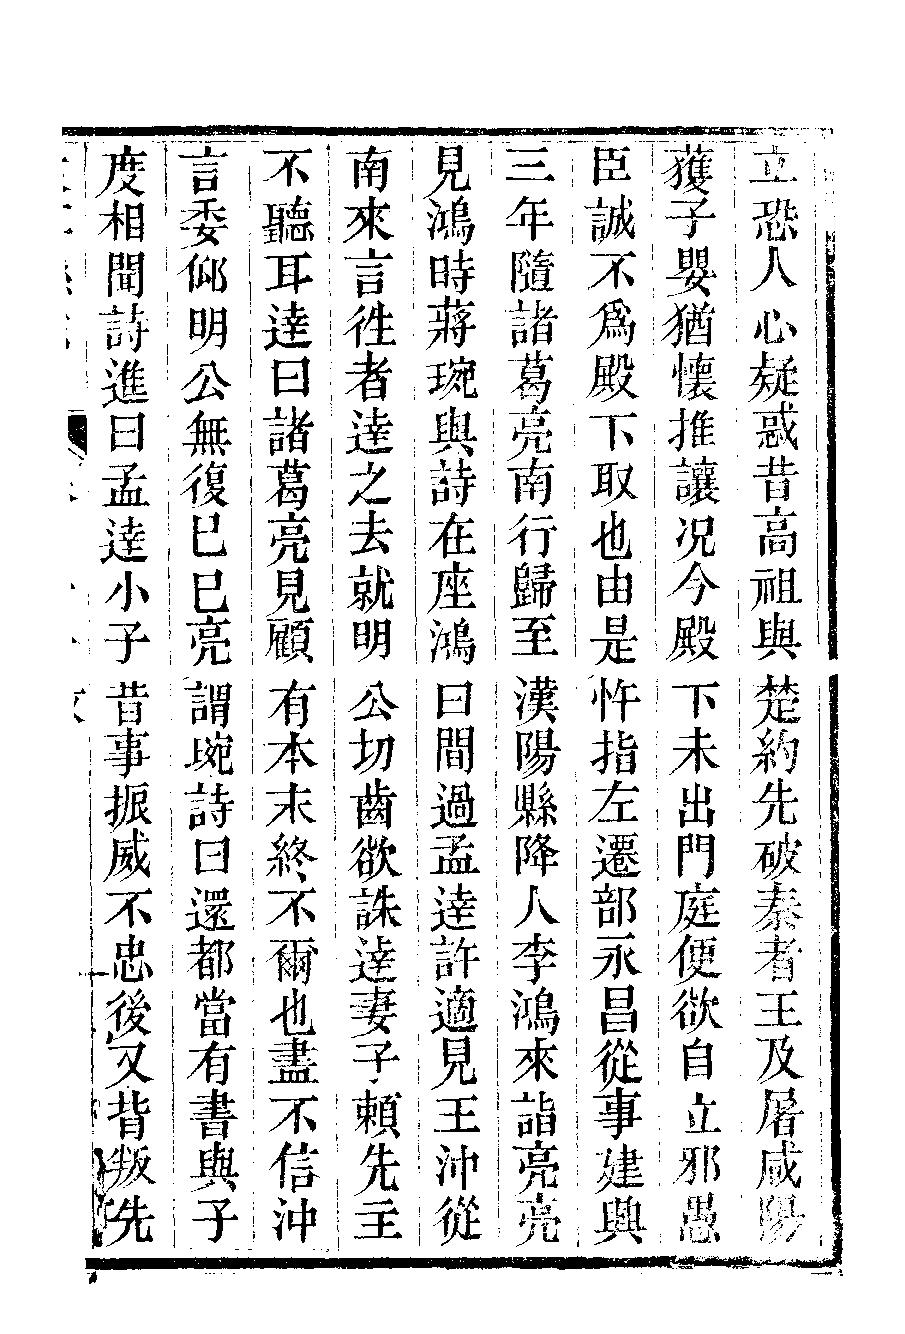 立恐人心疑惑昔高祖與楚約先破秦者王及屠咸陽
獲子嬰猶懷推讓况今殿下未出門庭便欲自立邪愚
臣誠不爲殿下取也由是忤指左遷部永昌從事建興
三年隨諸葛亮南行歸至漢陽縣降人李鴻來詣亮亮
見鴻時蔣琬與詩在座鴻曰間過孟逹許適見王沖從
南來言徃者逹之去就明公切齒欲誅逹妻子賴先主
不聽耳逹曰諸葛亮見顧有本末終不爾也盡不信沖
言委仰明公無復已已亮謂琬詩曰還都當有書與子
度相聞詩進曰孟逹小子昔事振威不忠後又背叛先